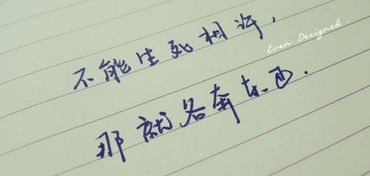 不能生死相许，
Even Designed
那就各奔东西.